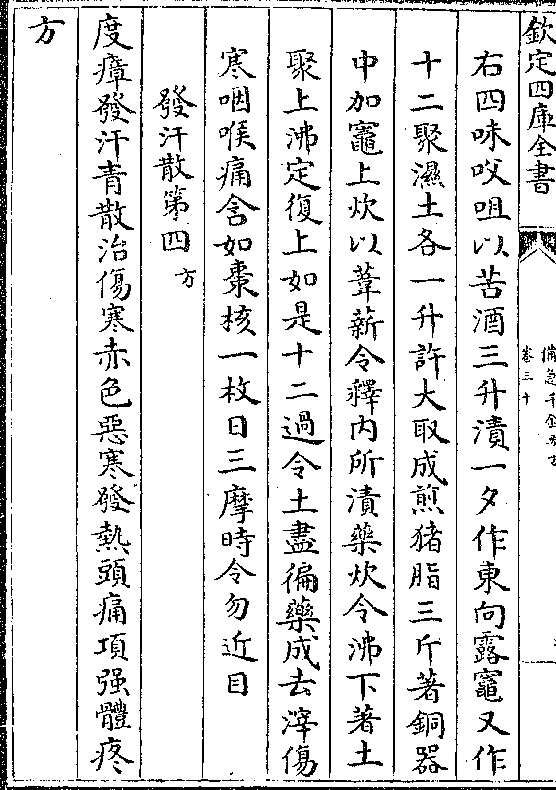 欽定四庫全書
備急千金要方
卷三十
右四味㕮咀以苦酒三升漬一夕作東向露竈又作
十二聚濕土各一升許大取成煎猪脂三斤著銅器
中加竈上炊以葦薪令釋內所漬藥炊令沸下著土
聚上沸定復上如是十二過令土盡徧藥成去滓傷
寒咽喉痛含如棗核一枚日三摩時令勿近目
發汗散第四方
度瘴發汗青散治傷寒赤色惡寒發熱頭痛項强體疼
方